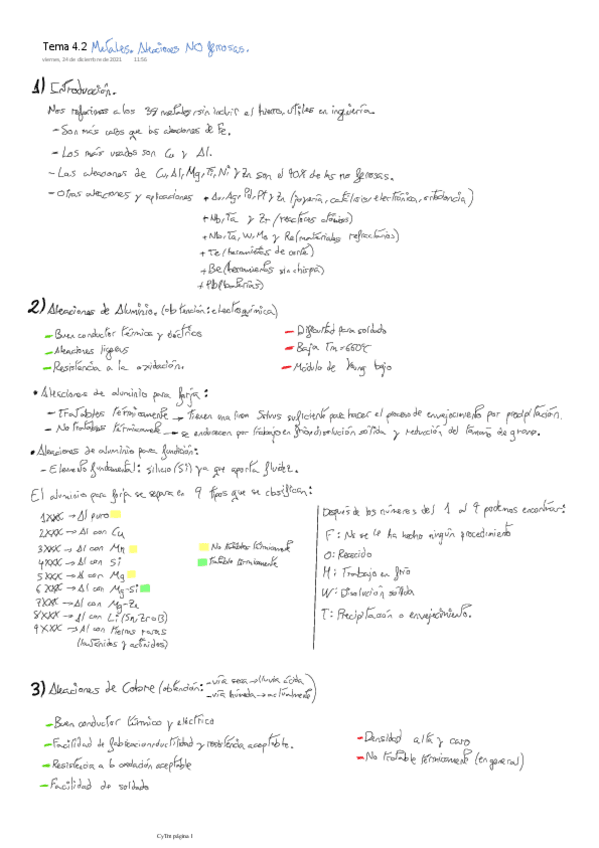 Tema 4.2 Metales. Aleaciones NO ferrosas.
viernes, 24 de diciembre de 2021 11:56
1) Introducción.
Nos referimos a los 38 metales, sin incluir el hierro, utiles en ingeniería.
- Son más caros que las aleaciones de Fe.
- Los más usados son Cu y Al.
- Las aleaciones de Cu, Al, Mg, Ti, Ni y Zn son el 90% de las no ferrosas.
- Otras aleaciones y aplicaciones + Au, Ag, Pd, Pt y Zn (joyería, catálisis, electrónica, ortodoncia)
+ Nb, Ta y Zr (reactores atómicos)
+ Nb, Ta, W, Mo y Re (materiales refractarios)
+ Te (herramientas de corte)
+ Be (herramientas sin chispa)
+ Pb (baterías)
2) Aleaciones de Aluminio. (obtención: electroquímica)
- Buen conductor térmico y eléctrico
- Aleaciones ligeras
- Resistencia a la oxidación.
- Dificultad para soldado
- Baja Tm = 660ºC
- Módulo de Young bajo
• Aleaciones de aluminio para forja:
- Tratables térmicamente → Tienen una línea Solvus suficiente para hacer el proceso de envejecimiento por precipitación.
- No tratables térmicamente → se endurecen por trabajo en frío, disolución sólida y reducción del tamaño de grano.
• Aleaciones de aluminio para fundición:
- Elemento fundamental: silicio (Si) ya que aporta fluidez.
El aluminio para forja se separa en 9 tipos que se clasifican:
1XXX → Al puro
2XXX → Al con Cu
3XXX → Al con Mn
4XXX → Al con Si
5XXX → Al con Mg
6XXX → Al con Mg-Si
7XXX → Al con Mg-Zn
8XXX → Al con Li (Sn, Zr o B)
9XXX → Al con tierras raras
(lantánidos y actínidos)
No tratables térmicamente
Tratable térmicamente
Después de los números del 1 al 9 podemos encontrar:
F: No se le ha hecho ningún procedimiento
O: Recocido
H: Trabajo en frío
W: Disolución sólida
T: Precipitación o envejecimiento.
3) Aleaciones de Cobre (obtención: - vía seca → lluvia ácida
- vía húmeda → actualmente)
- Buen conductor térmico y eléctrico
- Facilidad de fabricación, ductilidad y resistencia aceptable.
- Resistencia a la oxidación aceptable
- Facilidad de soldado
- Densidad alta y caro
- No tratable térmicamente (en general)
CyTM página 1